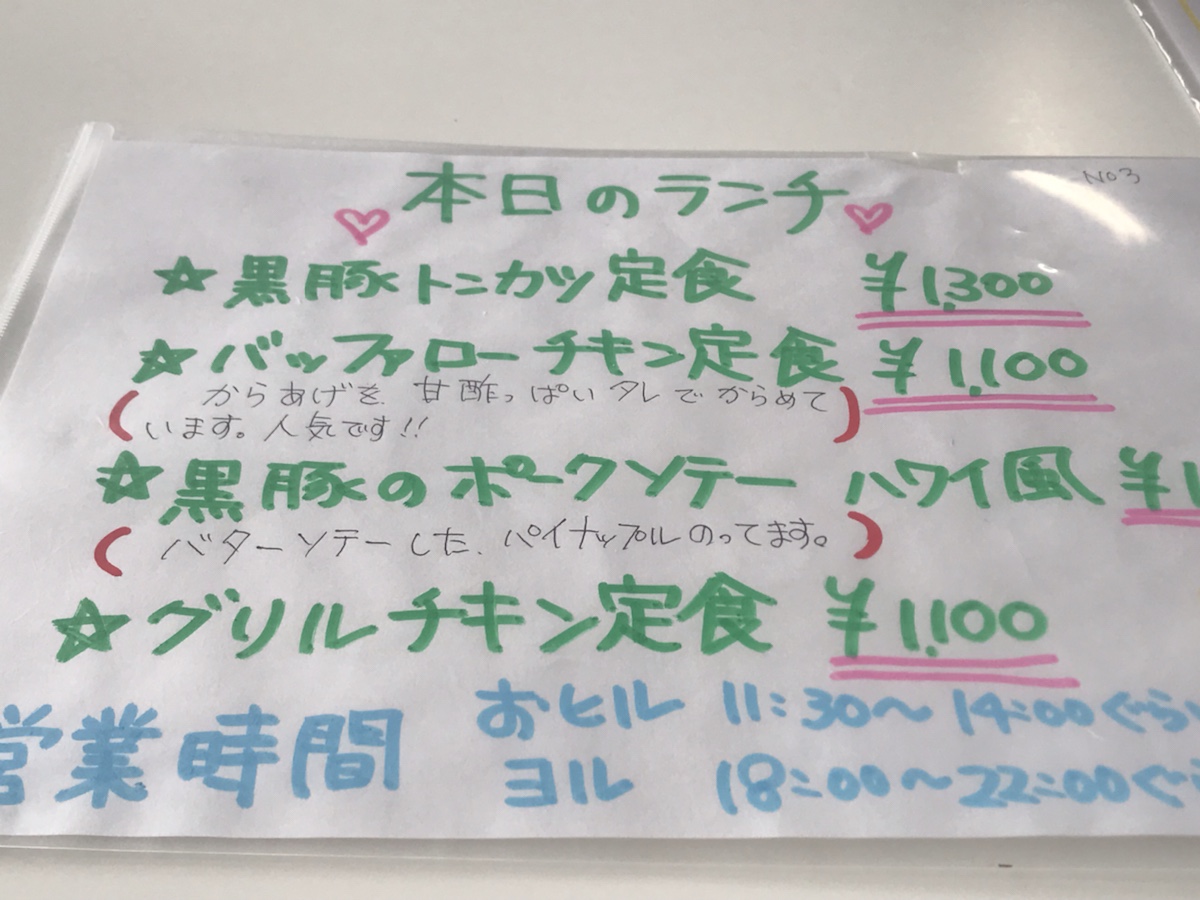 No3
本日のランチ
☆黒豚トンカツ定食 ¥1,300
☆バッファローチキン定食 ¥1,100
(からあげを、甘酢っぱいタレでからめて
います。人気です!!)
☆黒豚のポークソテー ハワイ風 ¥1
(バターソテーした、パイナップルのってます。)
☆グリルチキン定食 ¥1,100
営業時間 おヒル 11:30〜14:00ぐらい
ヨル 18:00〜22:00ぐ